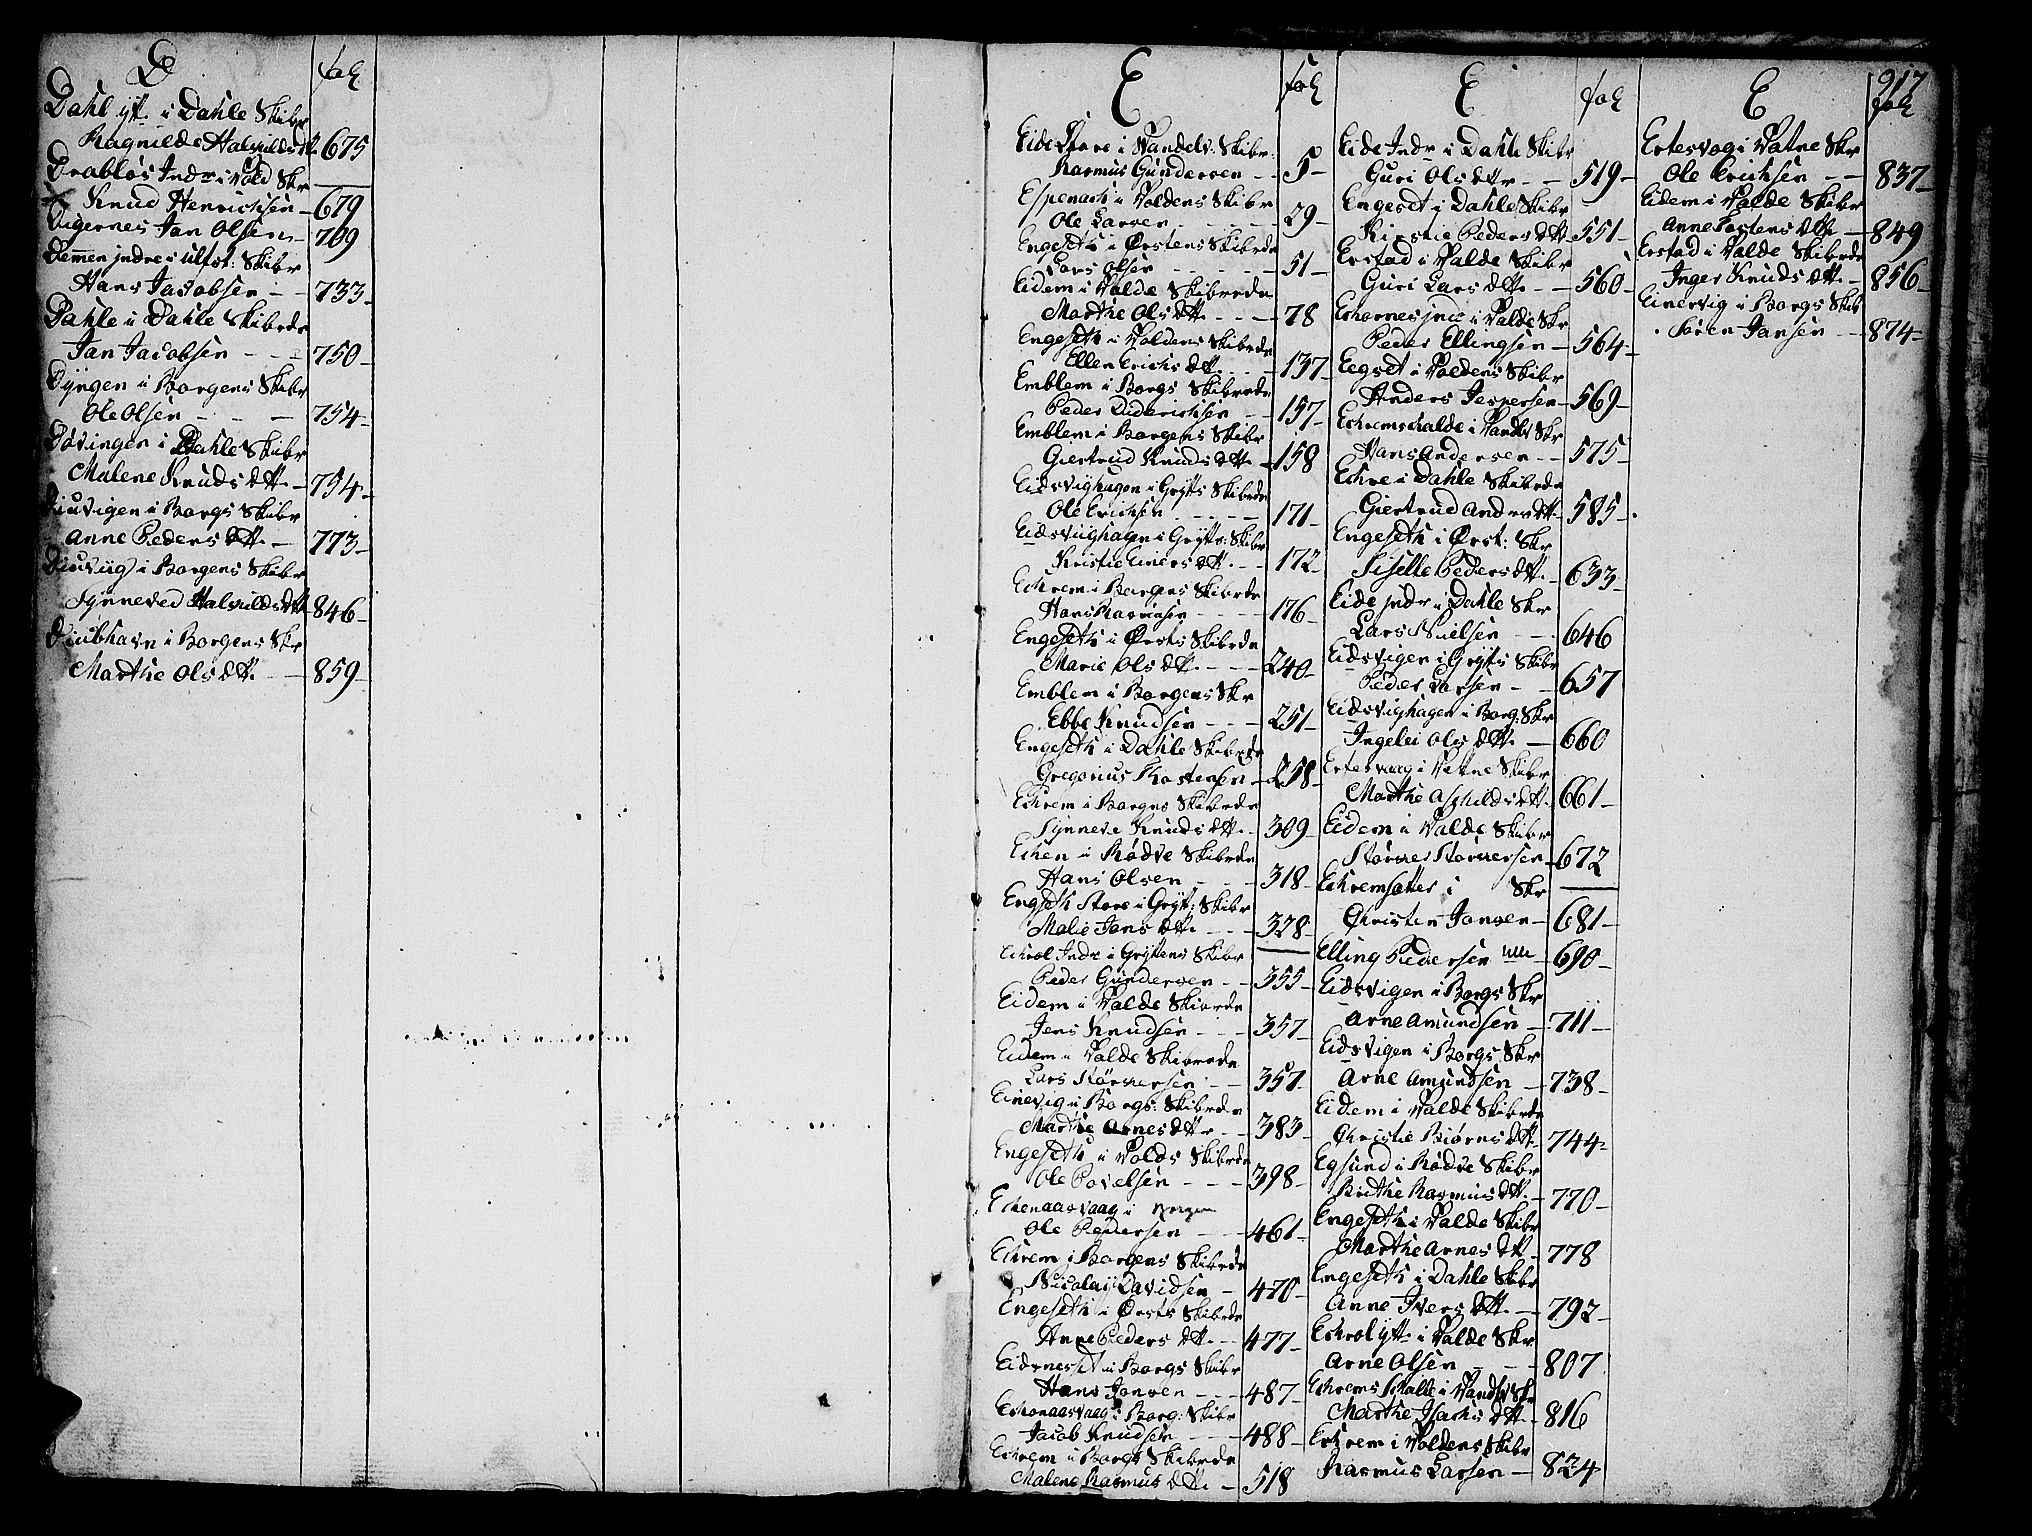 D fol
Dahl ytt. i Dahle Skibr
Ragnilde Halvuldsdtr 675
Drabløs Indr i Vold Skr
Knud Henrichsen 679
Digernes Jan Olsen 709
Demen jndre i Ulfst: Skibr
Hans Jacobsen 733
Dahle i Dahle Skibrde
Jan Jacobsen 750
Dyngen i Borgens Skibr
Ole Olsen 754
Døvingen i Dahle Skibr
Malene Knudsdtt. 754
Diuvigen i Borgs Skibr
Anne Pedersdtt. 773
Diuviig i Borgens Skibr
Synneved Halvuldsdtt 846
Diubhavn i Borgens Skr
Marthe Olsdtt. 859
E fol
Eide Store i Vandelv: Skibr:
Rasmus Gundersen 5
Espenach i Voldens Skibr
Ole Larsen 29
Engeseth i Ørstens Skibrede
Lars Olsen 51
Eidem i Valde Skibrede
Marthe Olsdtt. 78
Engeseth i Voldens Skibrede
Ellen Erichsdtt. 137
Emblem i Borgs Skibrede
Peder Diderichsen 157
Emblem i Borgens Skibr
Giertrud Knudsdtt. 158
Eidsvighagen i Grytts Skibrde
Ole Erichsen 171
Eidsviighagen i Grytt: Skibr
Kristie Einersdtt. 172
Echrem i Borgens Skibrede
Hans Rasmusen 176
Engeseth i Ørsts Skibrede
Marie Olsdtt. 240
Emblem i Borgens Skr
Ebbe Knudsen 251
Engeseth i Dahle Skibrede
Gregorius Thostensen 258
Echrem i Borgns Skibrede
Synneve Knudsdtt. 309
Echen i Rødve Skibrede
Hans Olsen 318
Engseth Store i Grytt: Skibr
Malie Jansdtt. 328
Echrol Indr i Gryttens Skibr
Peder Gundersen 355
Eidem i Valde Skibrede
Jens Knudsen 357
Eidem i Valde Skibrede
Lars Størchersen 357
Einevig i Borgs: Skibrede
Marthe Arnesdttr 383
Engeseth i Volds Skibrede
Ole Povelsen 398
Echenaasvaag i Borgen
Ole Pedersen 461
Echrem i Borgens Skibrede
Nicolaij Davidsen 470
Engeseth i Ørsts Skibrede
Anne Pedersdtt. 477
Eidsneset i Borgs Skibr
Hans Jonsen 487
Echonaasvaag i Borg: Skibr
Jacob Knudsen 488
Echrem i Borgs Skibrede
Malene Rasmusdtt. 518
E fol
Eide Indr i Dahle Skibr
Guri Olsdttr 519
Engeset i Dahle Skibr
Kirstie Pedersdtt 551
Erstad i Valde Skibr
Guri Larsdtt. 560
Echornes jnd: i Valde Skr
Peder Ellingsen 564
Eegset i Voldens Skibr
Anders Jespersen 569
Echremschalde i Vandelv Skr
Hans Andersen 575
Echre i Dahle Skibrede
Giertrud Andersdtt. 585
Engeseth i Ørst: Skr
Siselle Pedersdtt. 633
Eide jndr i Dahle Skr
Lars Nielsen 646
Eidsvigen i Grytts Skibr
Peder Larsen 657
Eidsvighagen i Borg: Skr
Ingelei Olsdtt. 660
Ertesvaag i Vatne Skibr
Marthe Asphildsdtt. 661
Eidem i Valde Skibr
Størcher Størchersen 672
Echremsætter i Skr
Christen Jonsen 681
Elling Pedersen 690
Eidsvigen i Borgs Skr
Arne Amundsen 711
Eidsvigen i Borgs Skr
Arne Amundsen 738
Eidem i Valde Skibrede
Christie Biørnsdtt. 744
Egsund i Rødve Skibr
Birthe Rasmusdtt. 770
Engeseth i Valde Skibr
Marthe Arnesdtt. 778
Engeseth i Dahle Skibr
Anne Iversdtt. 792
Echrol ytt. i Valde Skr
Arne Olsen 807
Echremschalde i Vandelv Skr
Marthe Isachsdtt. 816
Echrem i Voldens Skibr
Rasmus Larsen 824
917
E fol
Ertesvog i Vatne Skr
Ole Erichsen 837
Eidem i Valde Skibr
Anne Tostensdtt. 849
Erstad i Valde Skibrede
Inger Knudsdtt. 856
Einervig i Borgs Skib
Søren Jansen 874